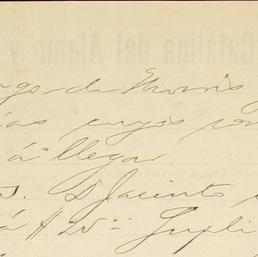 Catalina del Alamo y
ago de Morris
ias cuyos con
á llegar
s. D Jacinto
á $ 25.ºº Supli